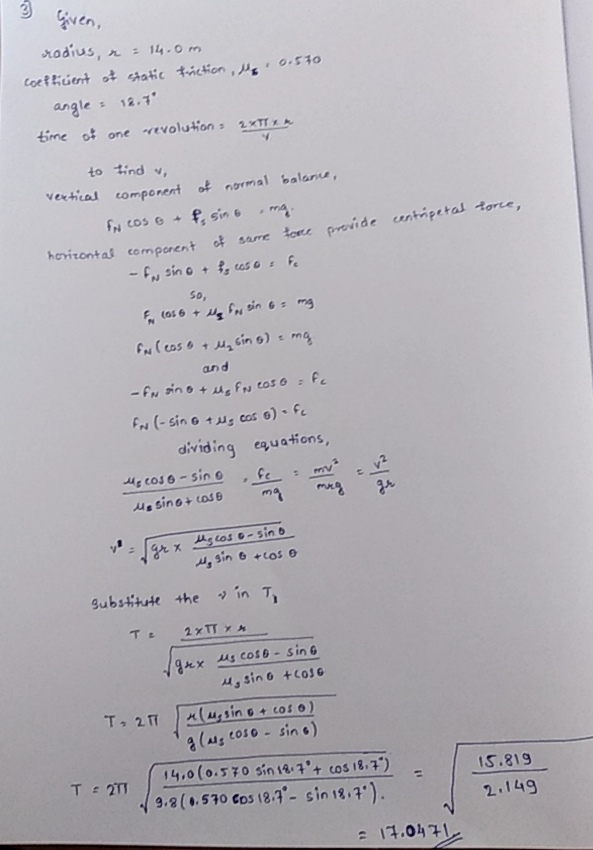 3) Given,
radius, r = 14.0 m
coefficient of static friction, μs = 0.570
angle = 18.7°
time of one revolution = 2×π×r / v
to find v,
vertical component of normal balance,
FN cos θ + fs sin θ = mg.
horizontal component of same force provide centripetal force,
- FN sin θ + fs cos θ = Fc
So,
FN cos θ + μs FN sin θ = mg
FN (cos θ + μs sin θ) = mg
and
- FN sin θ + μs FN cos θ = Fc
FN (- sin θ + μs cos θ) = Fc
dividing equations,
μs cos θ - sin θ / μs sin θ + cos θ = Fc / mg = mv² / mrg = v² / gr
v = √(gr × μs cos θ - sin θ / μs sin θ + cos θ)
Substitute the v in T,
T = 2×π×r / √(gr× μs cos θ - sin θ / μs sin θ + cos θ)
T = 2π √(r(μs sin θ + cos θ) / g(μs cos θ - sin θ))
T = 2π √(14.0(0.570 sin 18.7° + cos 18.7°) / 9.8(0.570 cos 18.7° - sin 18.7°).) = √(15.819 / 2.149)
= 17.0471